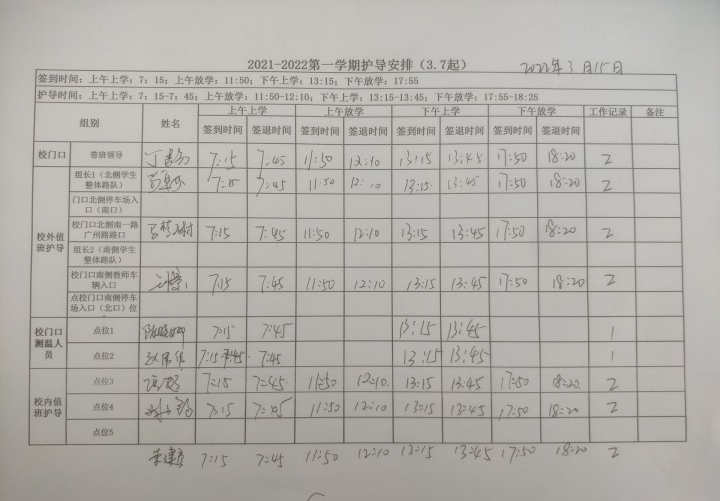 2021-2022第一学期护导安排（3.7起） 2022年3月15日
签到时间：上午上学：7：15；上午放学：11:50；下午上学：13:15；下午放学：17:55
护导时间：上午上学：7：15-7；45；上午放学：11:50-12:10；下午上学：13:15-13:45；下午放学：17:55-18:25
组别 姓名 上午上学 上午放学 下午上学 下午放学 工作记录 备注
签到时间 签退时间 签到时间 签退时间 签到时间 签退时间 签到时间 签退时间
校门口 带班领导 7:15 7:45 11:50 12:10 13:15 13:45 17:50 18:20 2
校外值班护导
组长1（北侧学生整体路队） 7:15 7:45 11:50 12:10 13:15 13:45 17:50 18:20 2
门口北侧停车场入口（南口）
校门口北侧南一路广州路路口 7:15 7:45 11:50 12:10 13:15 13:45 17:50 18:20 2
组长2（南侧学生整体路队）
校门口南侧教师车辆入口 7:15 7:45 11:50 12:10 13:15 13:45 17:50 18:20 2
点校门口南侧停车场入口（北口）位
校门口测温人员
点位1 7:15 7:45 13:15 13:45 1
点位2 7:15 7:45 7:45 13:15 13:45 1
校内值班护导
点位3 7:15 7:45 11:50 12:10 13:15 13:45 17:50 18:20 2
点位4 7:15 11:50 12:10 13:15 13:45 17:50 18:20 2
点位5
7:15 7:45 11:50 12:10 13:15 13:45 17:50 18:20 2